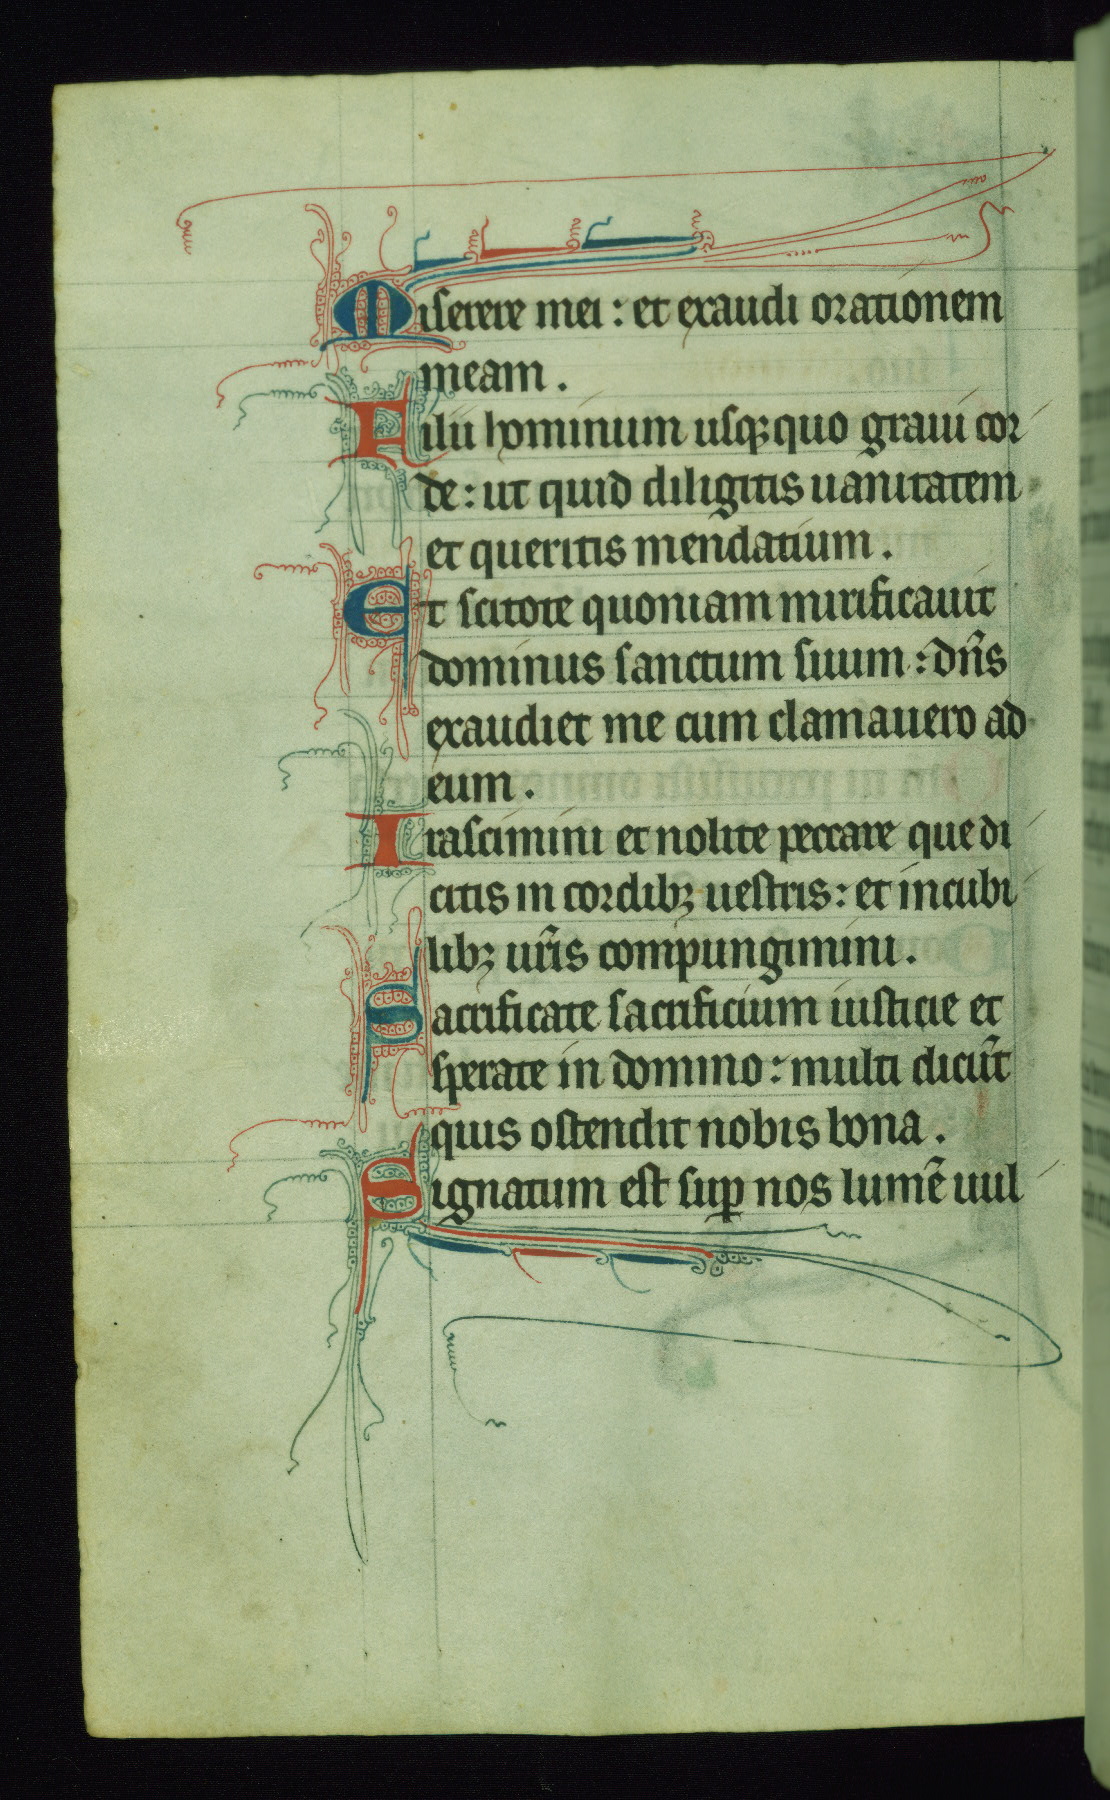 Miserere mei : et exaudi orationem
meam .
Filii hominum usqꝫquo graui cor
de : ut quid diligitis uanitatem
et queritis mendatium .
Et scitote quoniam mirificauit
dominus sanctum suum : dn̄s
exaudiet me cum clamauero ad
eum .
Irascimini et nolite peccare que di
citis in cordibꝫ uestris : et in cubi
libꝫ ur̄is compungimini .
Sacrificate sacrificium iusticie et
sperate in domino : multi dicūt
quis ostendit nobis bona .
Signatum est suꝑ nos lumē uul